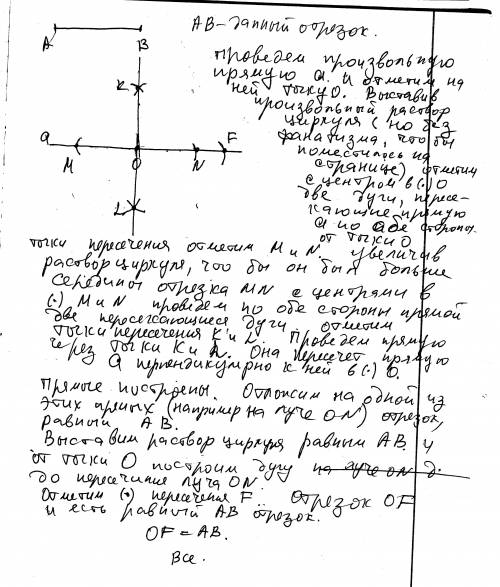 АВ - данный отрезок.
А В
Проведем произвольную
прямую а. и отметим на
ней точку О. Выставив
произвольный раствор
циркуля (но без
фанатизма, что бы
поместилось на
странице) отметим
с центром в (·) О
две дуги, пересе-
кающие прямую
а по обе стороны
от точки О
K
a M O N F
L
точки пересечения отметим М и N. Увеличив
раствор циркуля, что бы он был больше
середины отрезка MN с центрами в
(·) М и N проведем по обе стороны прямой
две пересекающиеся дуги отметим
точки пересечения К и L. Проведем прямую
через точки К и L. Она пересечет прямую
а перпендикулярно к ней в (·) О.
Прямые построены. Отложим на одной из
этих прямых (например на луче ON) отрезок,
равный АВ.
Выставим раствор циркуля равный АВ и
от точки О построим дугу на луче ON д.
до пересечения луча ON.
Отметим (·) пересечения F. Отрезок OF
и есть равный АВ отрезок.
OF = AB.
Все.